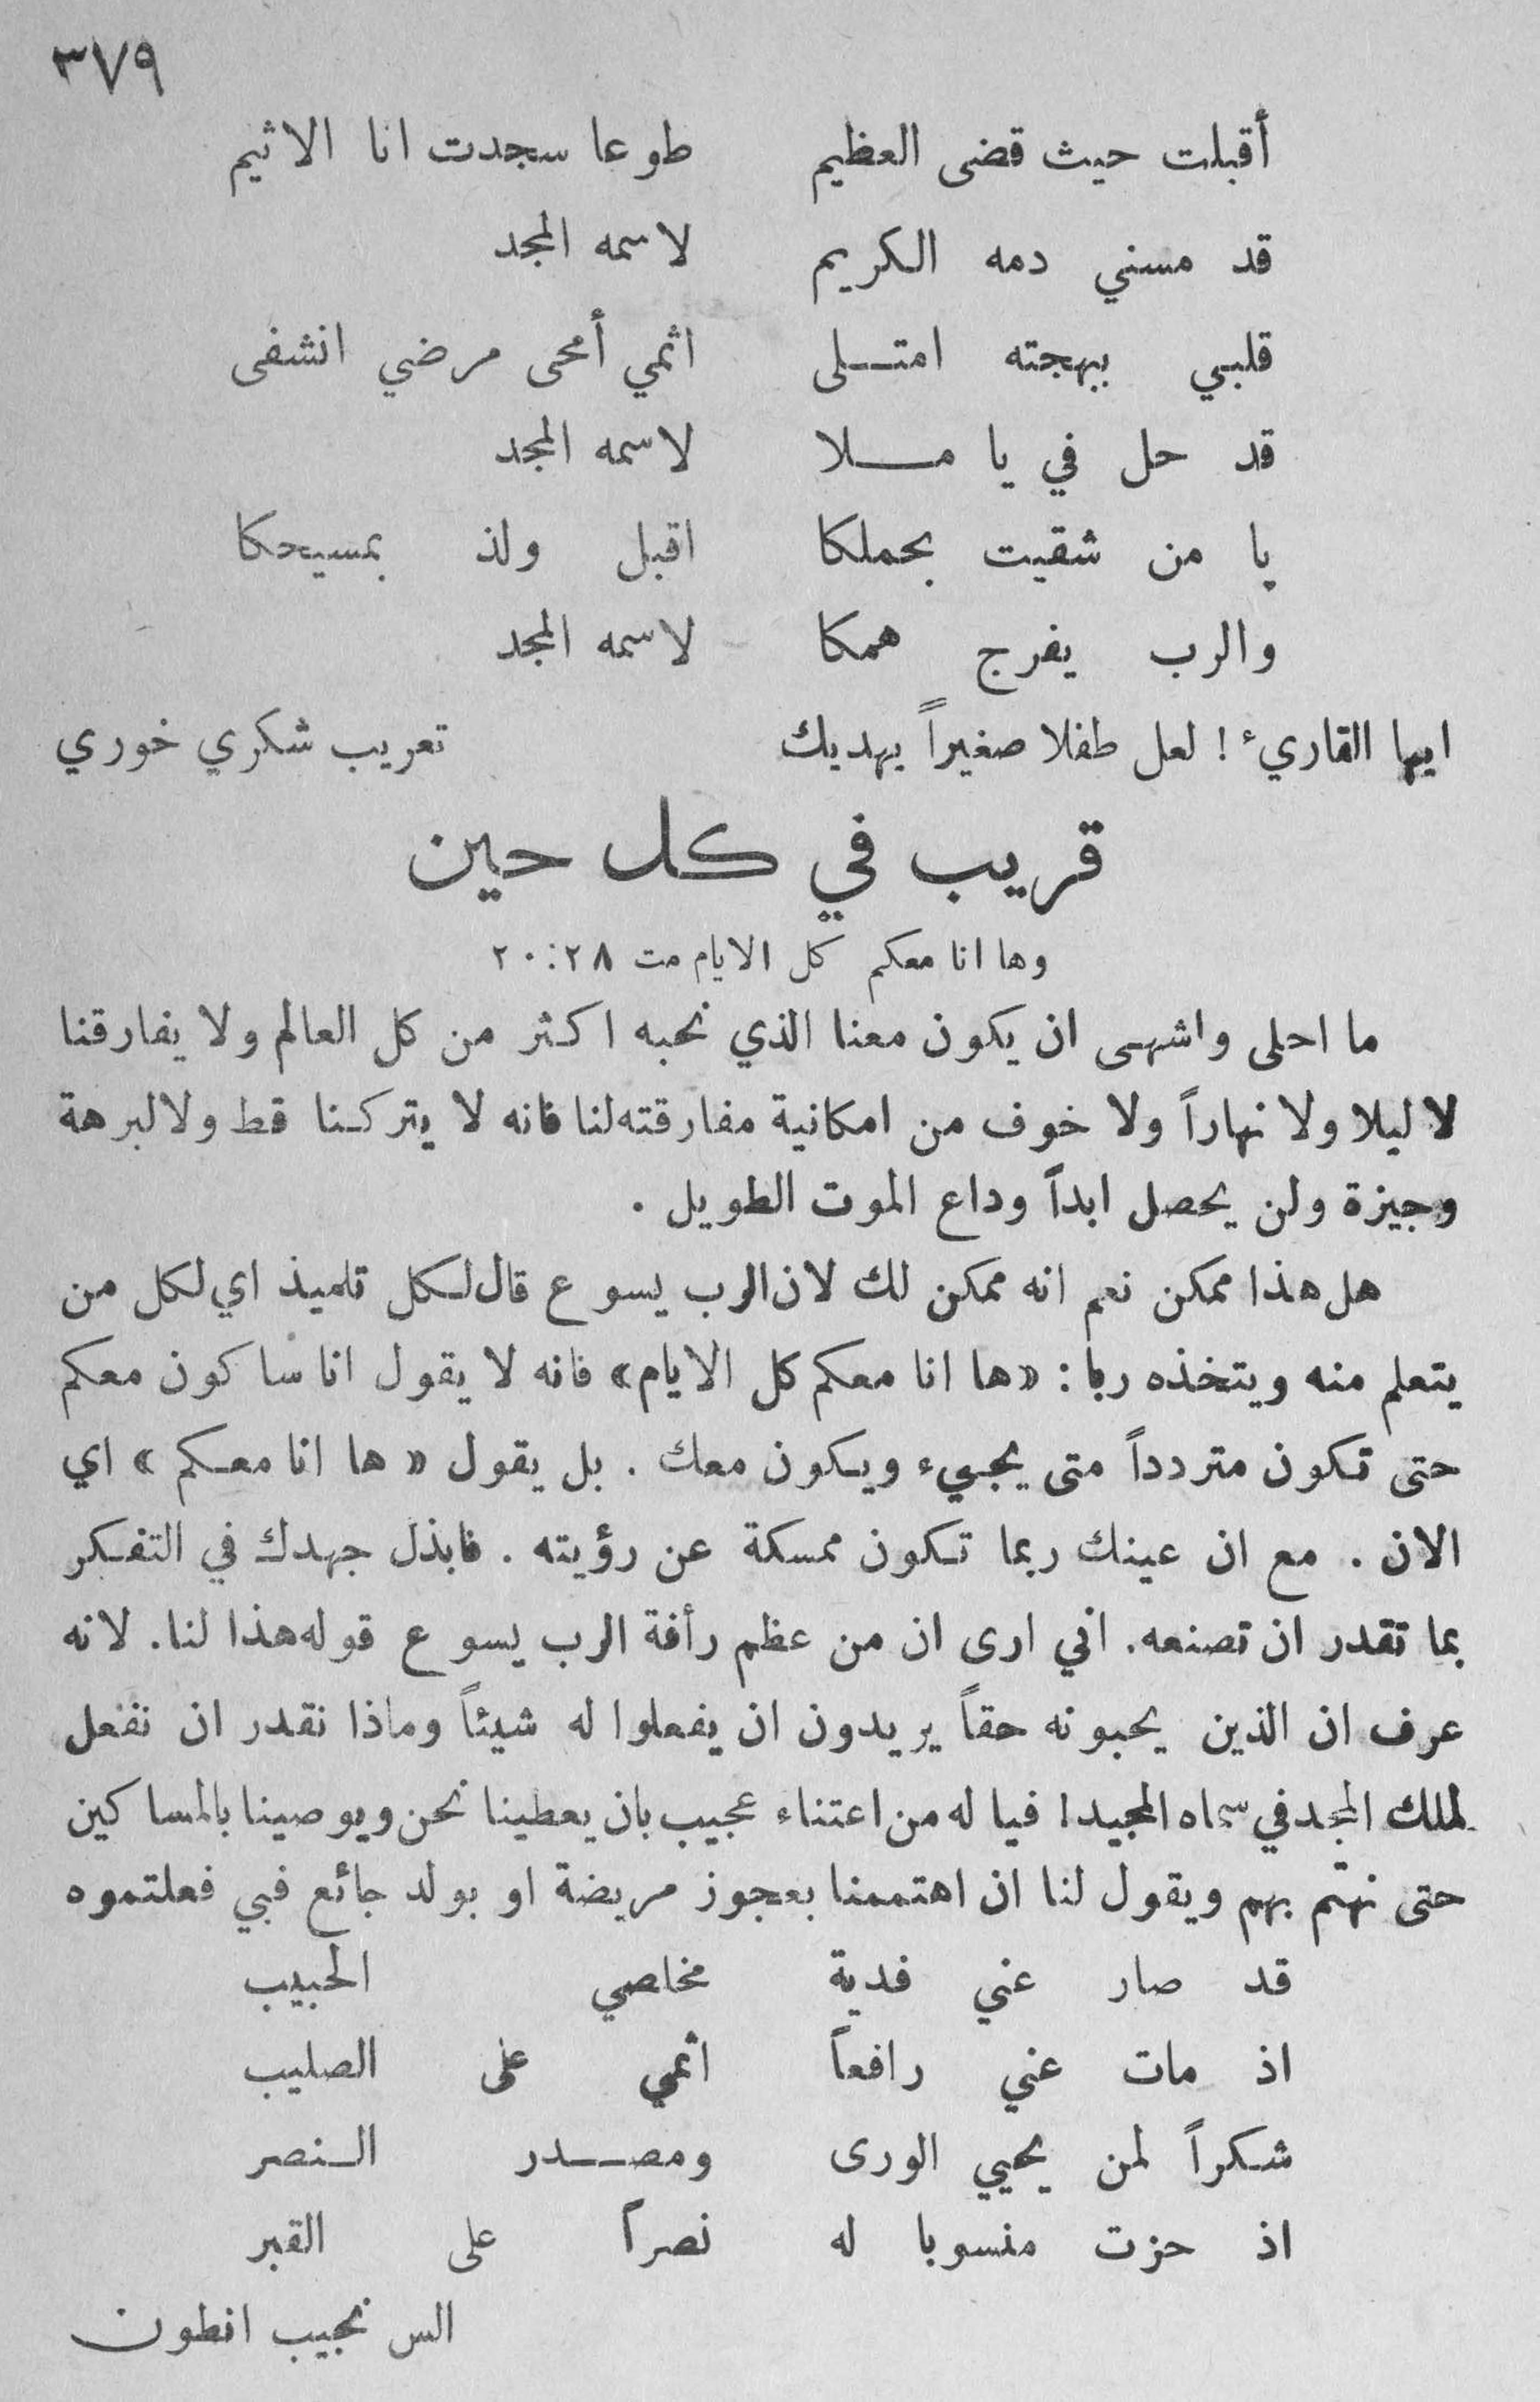 ٣٧٩
أقبلت حيث قضى العظيم طوعا سجدت انا الاثيم
قد مسني دمه الكريم لاسمه المجد
قلبي ببهجته امتلى اثمي أمحى مرضي انشفى
قد حل في يا ملا لاسمه المجد
يا من شقيت بحملكا اقبل ولذ بمسيحكا
والرب يفرج همكا لاسمه المجد
ايها القاريء ! لعل طفلا صغيراً يهديك تعريب شكري خوري
قريب في كل حين
وها انا معكم كل الايام مت ٢٠:٢٨
ما احلى واشهى ان يكون معنا الذي نحبه اكثر من كل العالم ولا يفارقنا
لا ليلا ولا نهاراً ولا خوف من امكانية مفارقته لنا فانه لا يتركنا قط ولا لبرهة
وجيزة ولن يحصل ابداً وداع الموت الطويل .
هل هذا ممكن نعم انه ممكن لك لان الرب يسوع قال لكل تلميذ اي لكل من
يتعلم منه ويتخذه ربا : «ها انا معكم كل الايام» فانه لا يقول انا ساكون معكم
حتى تكون متردداً متى يجيء ويكون معك . بل يقول « ها انا معكم » اي
الان . مع ان عينك ربما تكون ممسكة عن رؤيته . فابذل جهدك في التفكر
بما تقدر ان تصنعه . اني ارى ان من عظم رأفة الرب يسوع قوله هذا لنا . لانه
عرف ان الذين يحبونه حقاً يريدون ان يفعلوا له شيئاً وماذا نقدر ان نفعل
لملك المجد في سماه المجيد! فيا له من اعتناء عجيب بان يعطينا نحن ويوصينا بالمساكين
حتى نهتم بهم ويقول لنا ان اهتممنا بعجوز مريضة او بولد جائع فبي فعلتموه
قد صار عني فدية مخلصي الحبيب
اذ مات عني رافعاً اثمي على الصليب
شكراً لمن يحيي الورى ومصدر النصر
اذ حزت منسوبا له نصراً على القبر
الس نجيب انطون